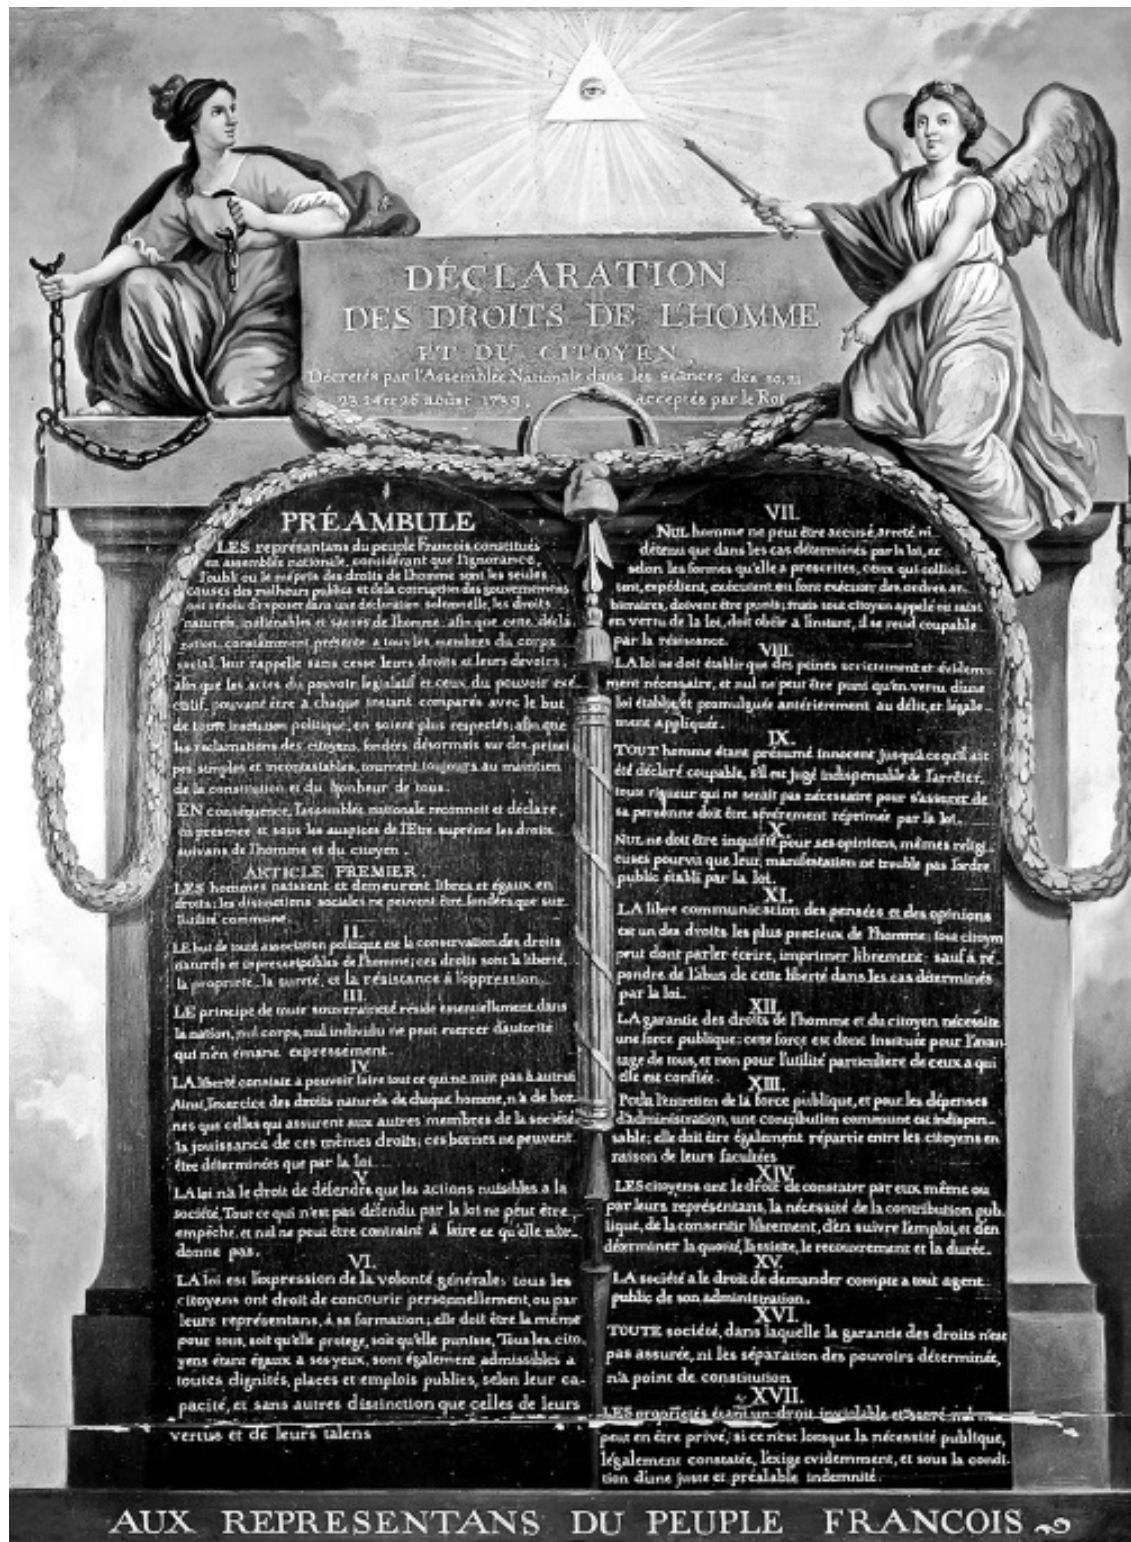 DÉCLARATION
DES DROITS DE L'HOMME
ET DU CITOYEN,
Décretés par l'Assemblée Nationale dans les séances des 20, 21
23 24 et 26 aoûst 1789, acceptés par le Roi
PRÉAMBULE
LES représantans du peuple Francois constitués
en assemblée nationale, considérant que l'ignorance,
l'oubli ou le mépris des droits de l'homme sont les seules
causes des malheurs publics et de la corruption des gouvernemens
ont résolu d'exposer dans une déclaration solemnelle, les droits
naturels, inaliénables et sacrés de l'homme: afin que cette décla
ration constamment présente a tous les membres du corps
social, leur rappelle sans cesse leurs droits et leurs devoirs
afin que les actes du pouvoir legislatif et ceux du pouvoir exé
cutif, pouvant être a chaque instant comparés avec le but
de toute institution politique, en soient plus respectés; afin que
les reclamations des citoyens, fondées désormais sur des princi
pes simples et incontestables, tournent toujours au maintien
de la constitution et du bonheur de tous.
EN conséquence, l'assemblée nationale reconnoit et déclare
en presence et sous les auspices de l'Etre suprême les droits
suivans de l'homme et du citoyen.
ARTICLE PREMIER.
LES hommes naissent et demeurent libres et égaux en
droits; les distinctions sociales ne peuvent être fondées que sur
l'utilité commune.
II.
LE but de toute association politique est la conservation des droits
naturels et imprescriptibles de l'homme; ces droits sont la liberté,
la propriété, la sureté, et la résistance à l'oppression.
III.
LE principe de toute souveraineté reside essentiellement dans
la nation, nul corps, nul individu ne peut exercer d'autorité
qui n'en émane expressément.
IV.
LA liberté consiste à pouvoir faire tout ce qui ne nuit pas à autrui
Ainsi, l'exercice des droits naturels de chaque homme, n'a de bor-
nes que celles qui assurent aux autres membres de la société
la jouissance de ces mêmes droits; ces bornes ne peuvent
être déterminées que par la loi
V.
LA loi n'a le droit de défendre que les actions nuisibles a la
société. Tout ce qui n'est pas défendu par la loi ne peut être
empêché, et nul ne peut être contraint à faire ce qu'elle n'or-
donne pas.
VI.
LA loi est l'expression de la volonté générale; tous les
citoyens ont droit de concourir personnellement, ou par
leurs représentans, à sa formation; elle doit être la même
pour tous, soit qu'elle protege, soit qu'elle punisse, Tous les cito
yens étant égaux à ses yeux, sont également admissibles a
toutes dignités, places et emplois publics, selon leur ca-
pacité, et sans autres distinction que celles de leurs
vertus et de leurs talens
VII.
NUL homme ne peut être accusé, arreté, ni
détenu que dans les cas déterminés par la loi, et
selon les formes qu'elle a prescrites, ceux qui sollici-
tent, expédient, exécutent ou font exécuter des ordres ar-
bitraires, doivent être punis; mais tout citoyen appelé ou saisi
en vertu de la loi, doit obéir à l'instant, il se rend coupable
par la résistance.
VIII.
LA loi ne doit établir que des peines strictement et évidem-
ment nécessaire, et nul ne peut être puni qu'en vertu d'une
loi établie, et promulguée antérierement au délit, et légale-
ment appliquée.
IX.
TOUT homme étant présumé innocent jusqu'à ce qu'il ait
été déclaré coupable, s'il est jugé indispensable de l'arrêter,
toute rigueur qui ne serait pas nécessaire pour s'assurer de
sa personne doit être sévèrement réprimée par la loi.
X.
NUL ne doit être inquiété pour ses opinions, mêmes religi-
euses pourvu que leur manifestation ne trouble pas l'ordre
public établi par la loi.
XI.
LA libre communication des pensées et des opinions
est un des droits les plus precieux de l'homme: tout citoyen
peut dont parler écrire, imprimer librement: sauf à ré-
pondre de l'abus de cette liberté dans les cas déterminés
par la loi.
XII.
LA garantie des droits de l'homme et du citoyen nécessite
une force publique: cette force est donc instituée pour l'avan-
tage de tous, et non pour l'utilité particuliere de ceux a qui
elle est confiée.
XIII.
POUR l'entretien de la force publique, et pour les dépenses
d'administration, une contribution commune est indispen-
sable; elle doit être également répartie entre les citoyens en
raison de leurs facultées
XIV.
LES citoyens ont le droit de constater par eux même ou
par leurs représentans, la nécessité de la contribution pub-
lique, de la consentir librement, d'en suivre l'emploi, et d'en
déterminer la quotité, l'assiette, le recouvrement et la durée.
XV.
LA société a le droit de demander compte a tout agent
public de son administration.
XVI.
TOUTE société, dans laquelle la garantie des droits n'est
pas assurée, ni les séparation des pouvoirs déterminée,
n'a point de constitution
XVII.
LES proprietés étant un droit inviolable et sacré nul ne
peut en être privé, si ce n'est lorsque la nécessité publique,
légalement constatée, l'exige evidemment, et sous la condi-
tion d'une juste et préalable indemnité.
AUX REPRESENTANS DU PEUPLE FRANCOIS